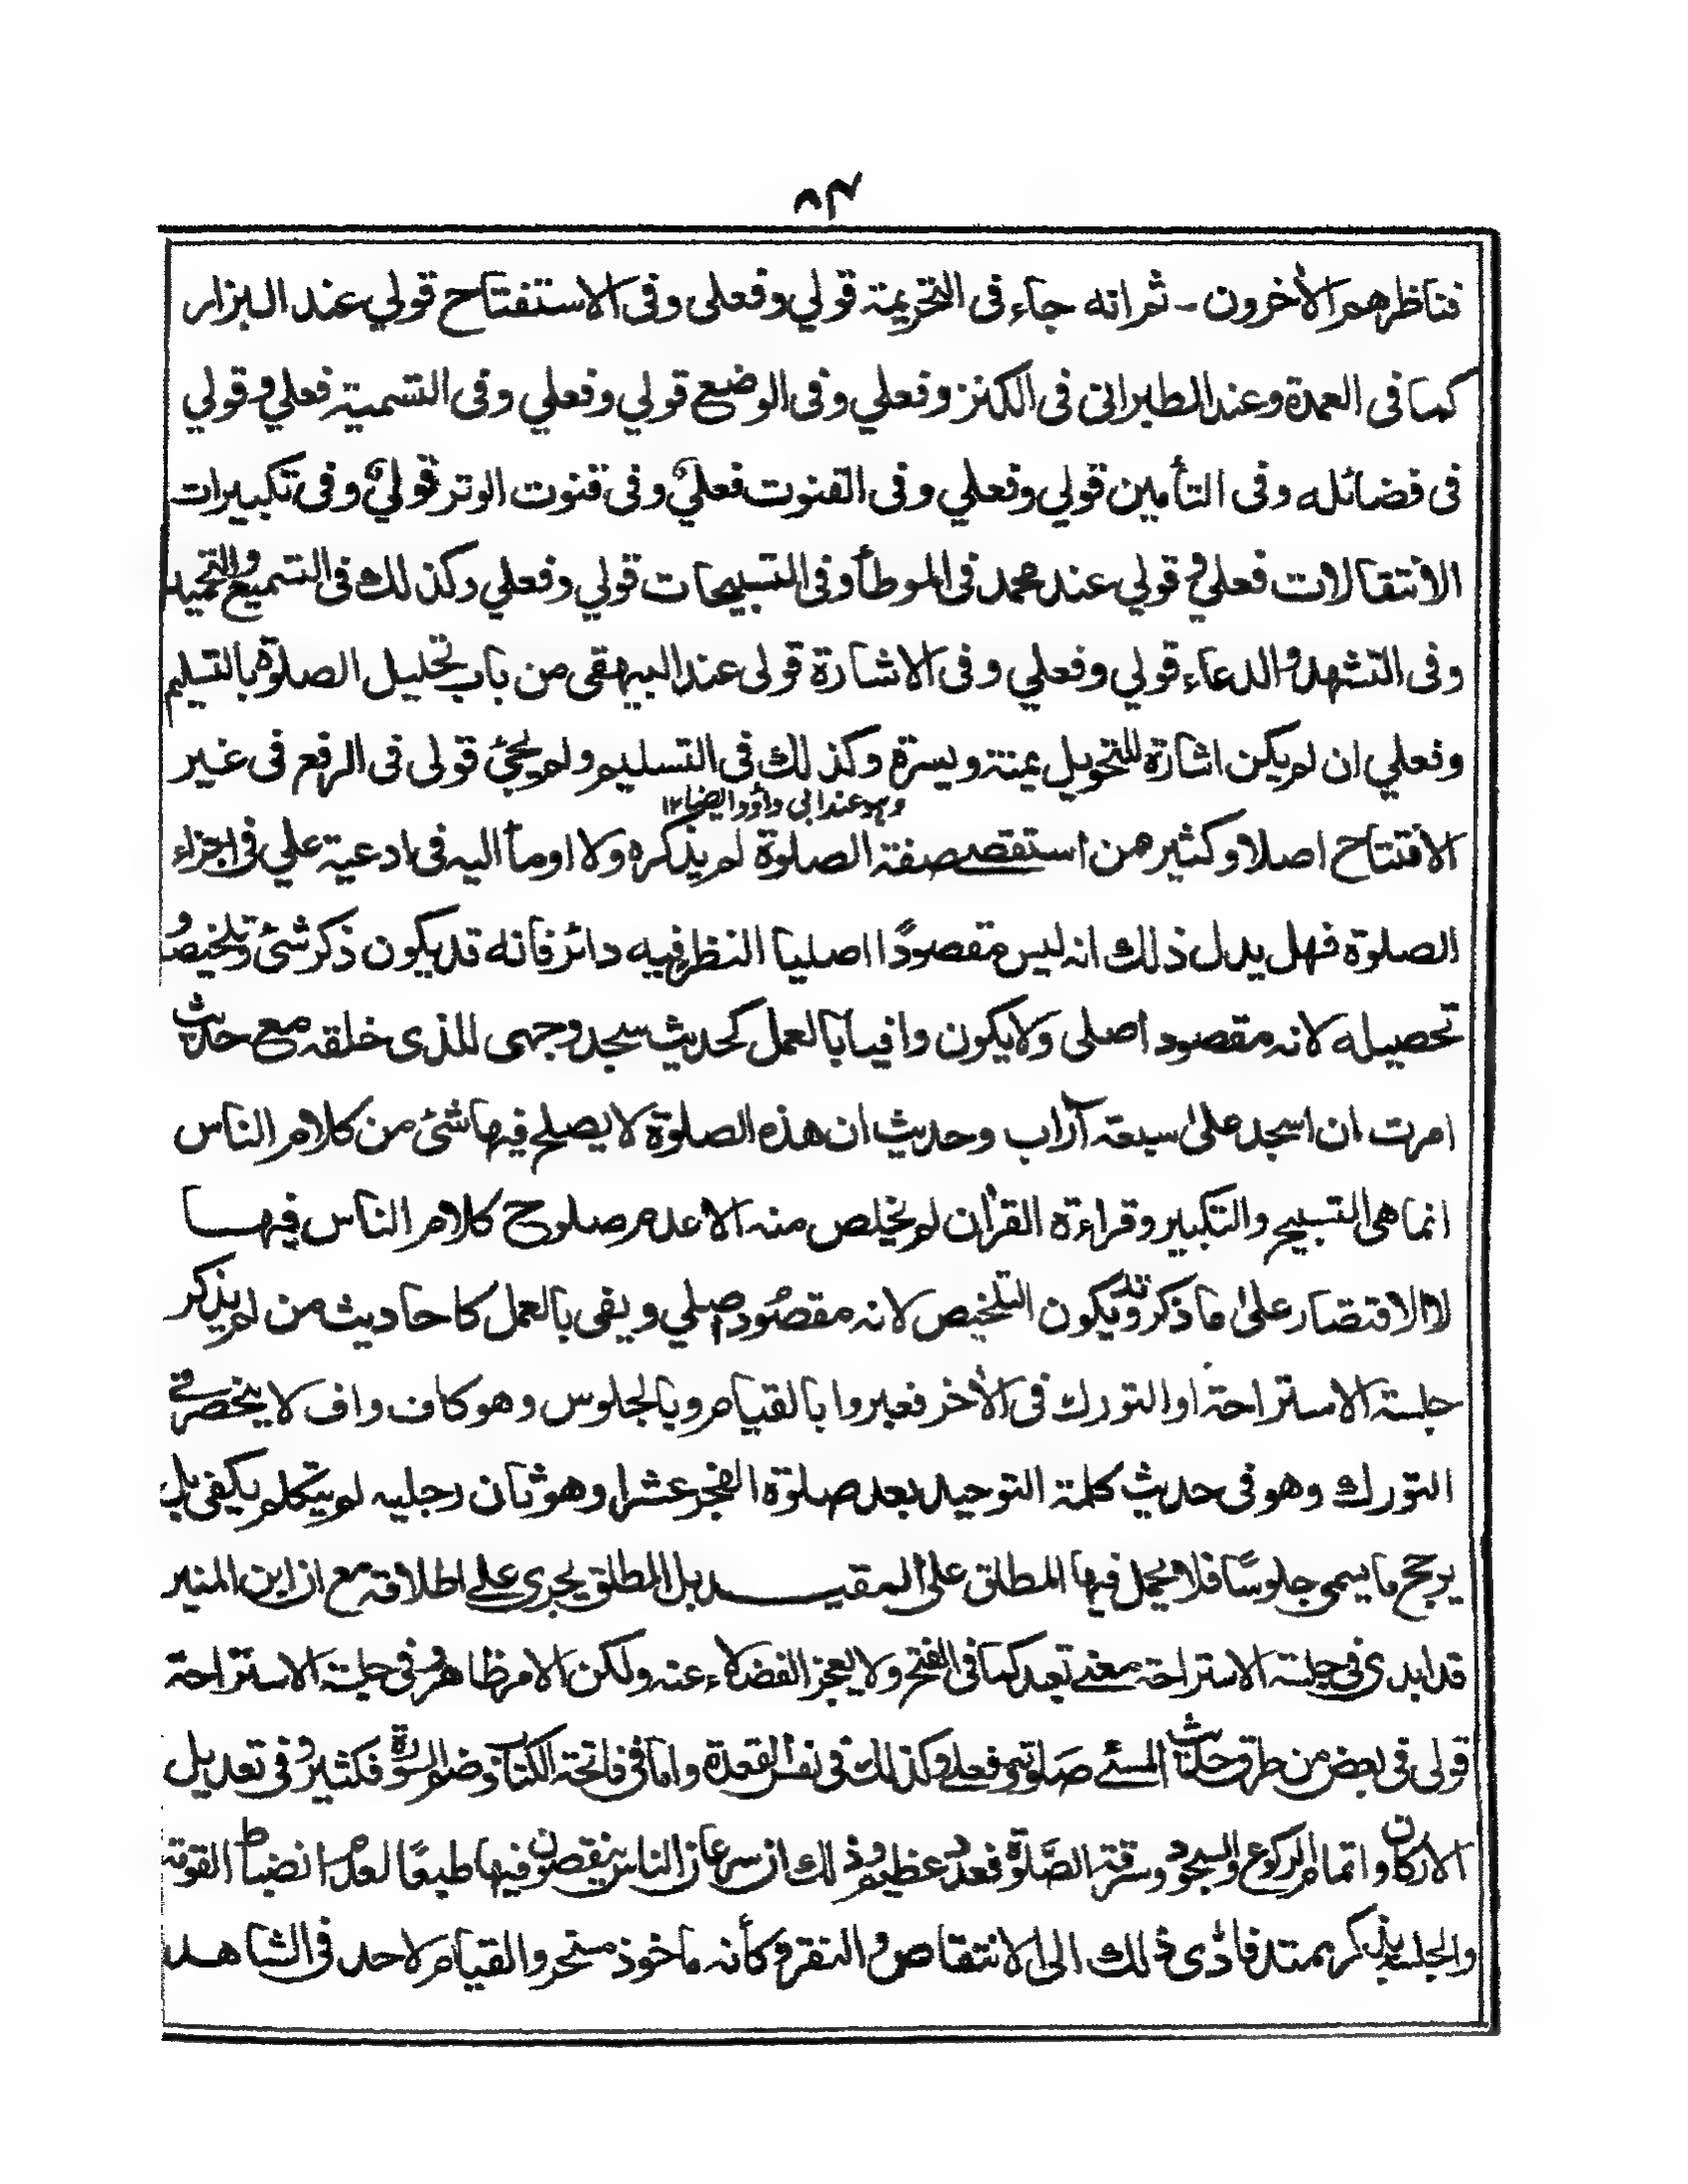 ٨٣
فناظرهم الآخرون - ثم انه جاء فى التحريمة قولي وفعلى وفى الاستفتاح قولي عند البزار
كما فى العمدة وعند الطبرانى فى الكنز وفعلي وفى الوضع قولي وفعلي وفى التسمية فعلي وقولي
فى فضائله وفى التأمين قولي وفعلي وفى القنوت فعلي وفى قنوت الوتر قولي وفى تكبيرات
الانتقالات فعلي وقولي عند محمد فى الموطأ وفى التسبيحات قولي وفعلي وكذلك فى التسميع والتحميد
وفى التشهد والدعاء قولي وفعلي وفى الاشارة قولى عند البيهقى من باب تحليل الصلوة بالتسليم
وفعلي ان لم يكن اشارة للتحويل يمنة ويسرة وكذلك فى التسليم ولم يجئ قولى فى الرفع فى غير
وہو عند ابی داؤد ایضا ١٢
الافتتاح اصلا وكثير ممن استقصى صفة الصلوة لم يذكره ولا اومأ اليه فى ادعية علي فى اجزاء
الصلوة فهل يدل ذلك انه ليس مقصودًا اصليا النظر فيه دائر فانه قد يكون ذكر شئ وتلخيص
تحصيله لانه مقصود اصلى ولا يكون وافيا بالعمل كحديث سجد وجهى للذى خلقه مع حديث
امرت ان اسجد على سبعة آراب وحديث ان هذه الصلوة لا يصلح فيها شئ من كلام الناس
انما هى التسبيح والتكبير وقراءة القرآن لم يخلص منه الا عدم صلوح كلام الناس فيها
لا الاقتصار على ما ذكر وقد يكون التلخيص لانه مقصود اصلي ويفى بالعمل كاحاديث من لم يذكر
جلسة الاستراحة او التورك فى الآخر فعبروا بالقيام وبالجلوس وهو كاف واف لا ينحصر فى
التورك وهو فى حديث كلمة التوحيد بعد صلوة الفجر عشرا وهو ثان رجليه لم يتكلم يكفى بل
يرجح ما يسمى جلوسًا فلا يحمل فيها المطلق على المقيد بل المطلق يجرى على اطلاقه مع ان ابن المنير
قد ابدى فى جلسة الاستراحة معنى تعبد كما فى الفتح ولا يعجز الفضلاء عنه ولكن الامر ظاهر وفى جلسة الاستراحة
قولى فى بعض من طرق حديث المسئ صلوته وفعلى وكذلك فى نفس القعدة واما فى فاتحة الكتاب وضم السورة فكثير وفى تعديل
الاركان واتمام الركوع والسجود وسرقة الصلوة فعدد عظيم وذلك ان سرعان الناس ينقصون فيها طبعًا لعدم انضباط القومة
والجلسة بذكر يمتد فادّى ذلك الى الانتقاص والنقر وكأنه ماخوذ مستحر والقيام لاحد فى الشاهد